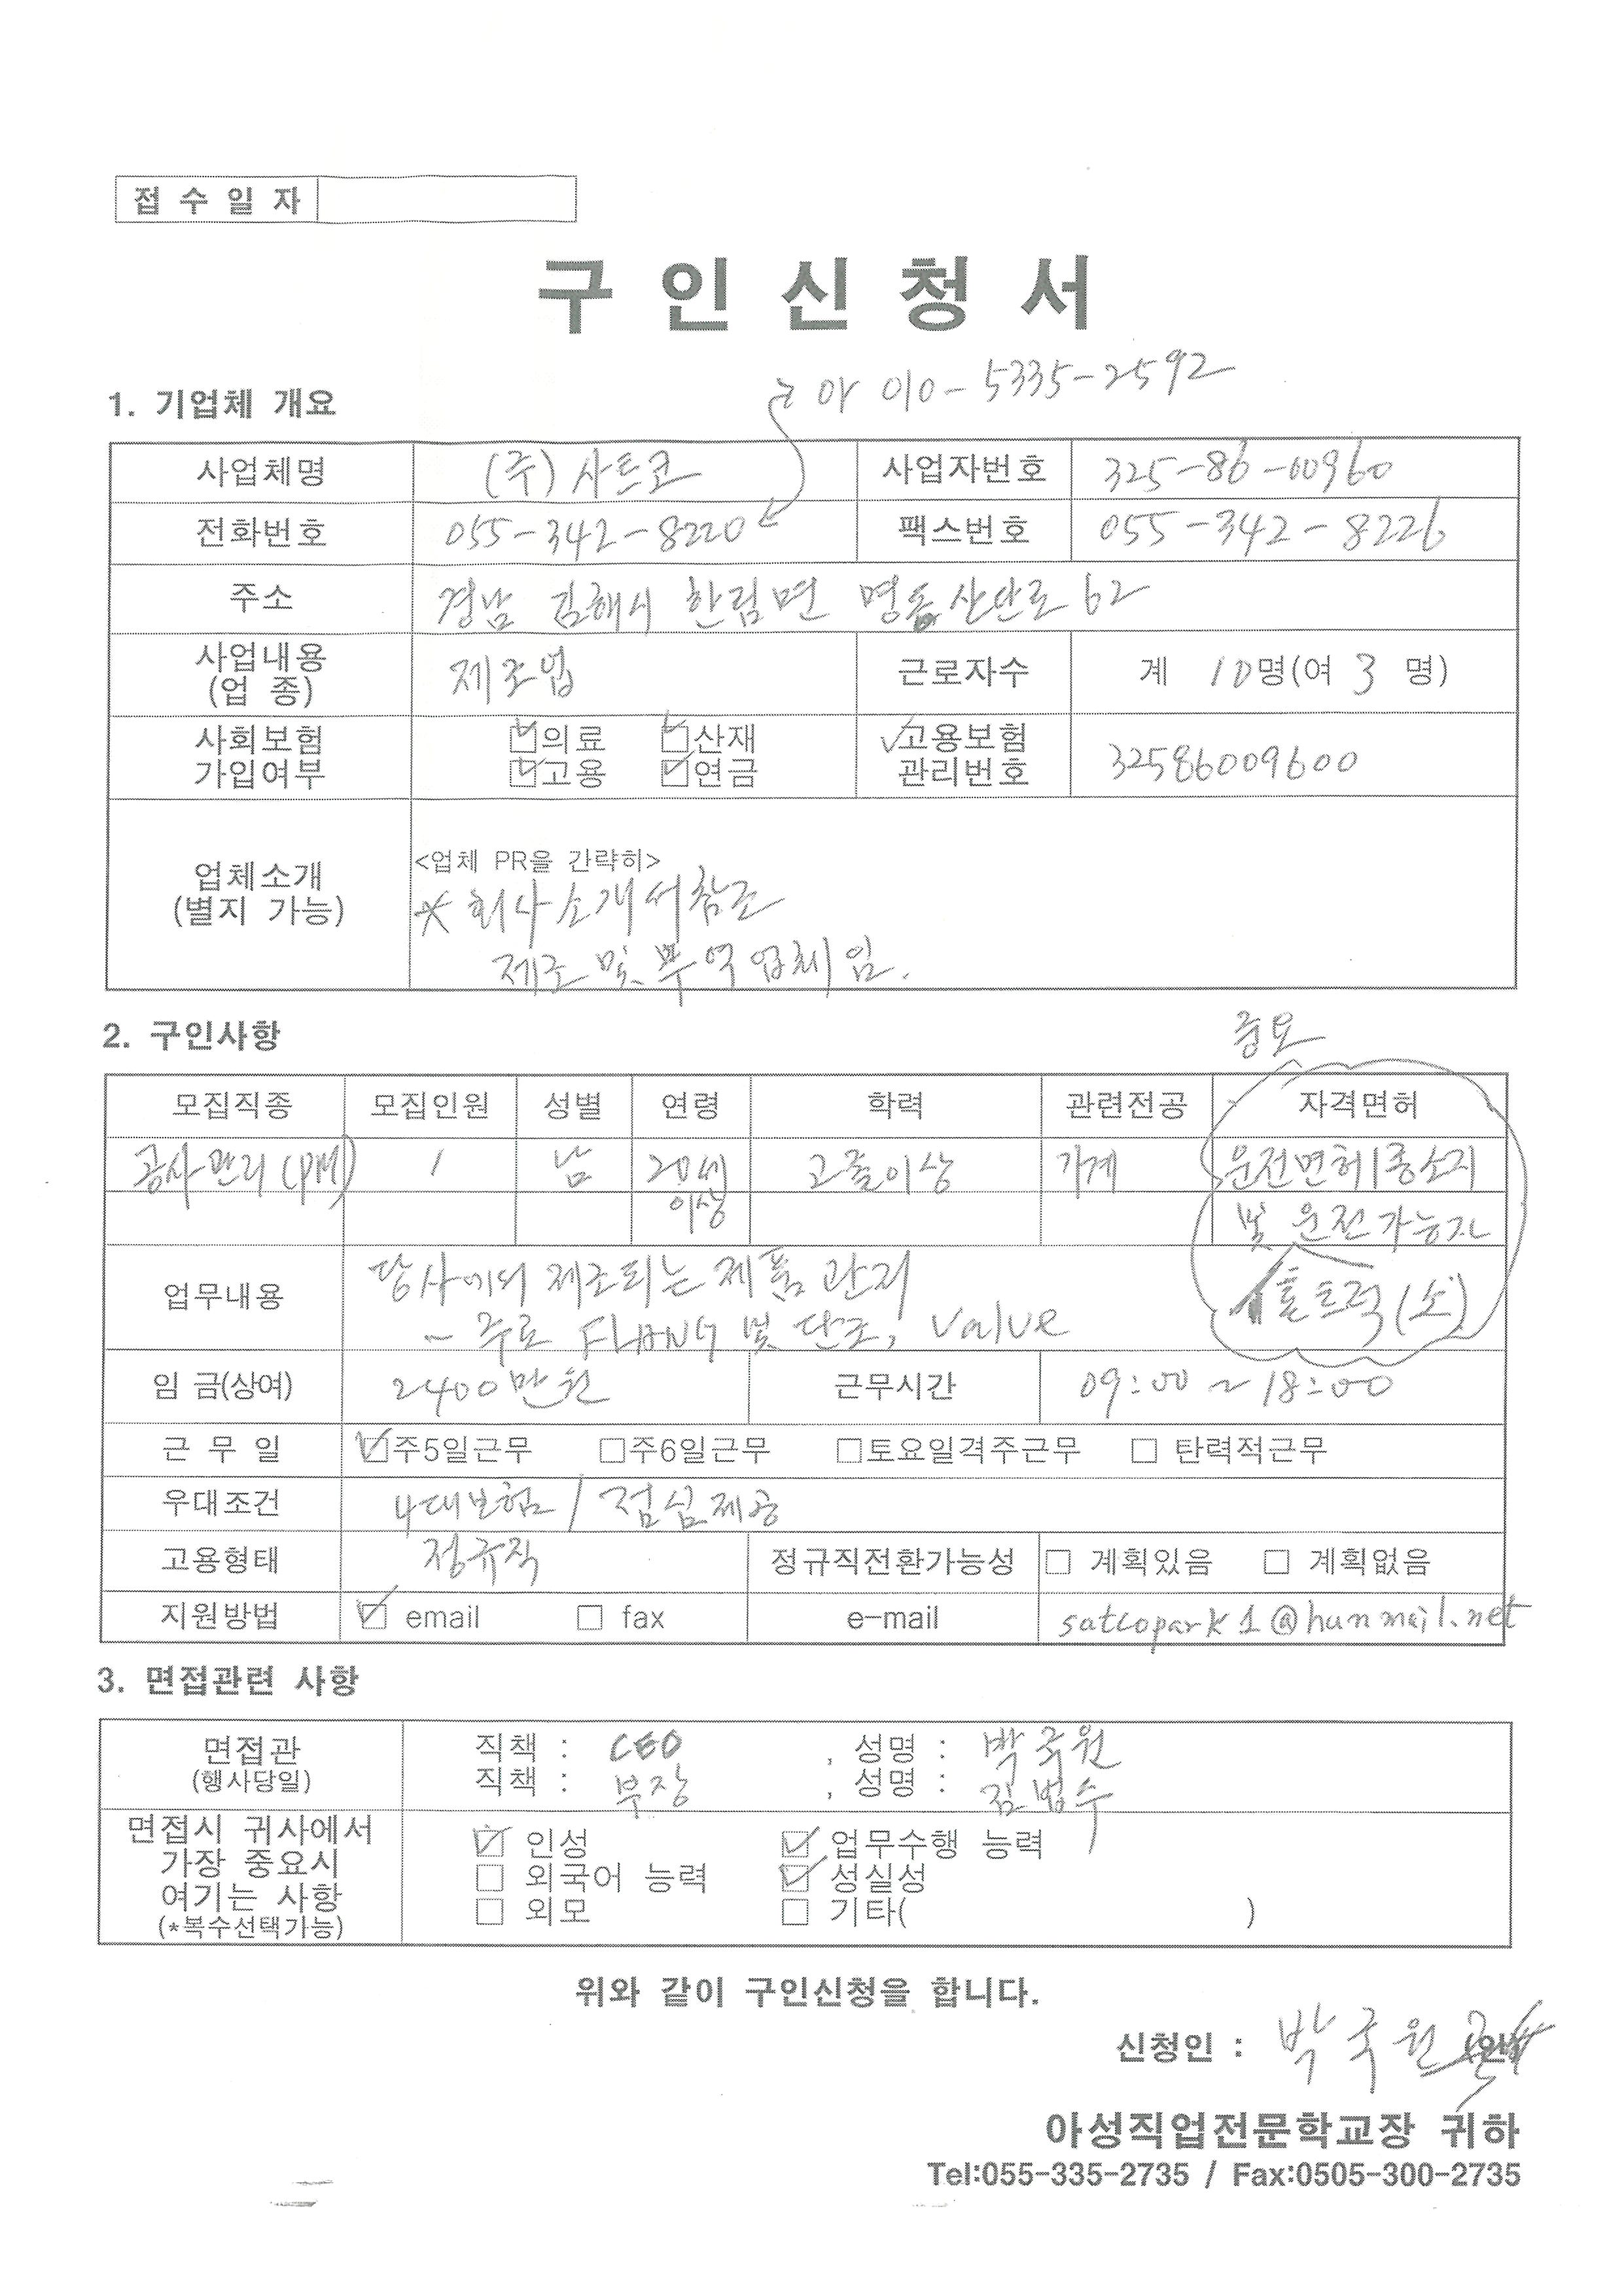 접 수 일 자
구 인 신 청 서
010-5335-2592
1. 기업체 개요
사업체명 (주)사트코 사업자번호 325-86-00960
전화번호 055-342-8220 팩스번호 055-342-8226
주소 경남 김해시 한림면 명동산단로 62
사업내용 (업 종) 제조업 근로자수 계 10명(여 3 명)
사회보험 ☑의료 ☑산재 ✓고용보험
가입여부 ☑고용 ☑연금 관리번호 32586009600
업체소개 (별지 가능) <업체 PR을 간략히>
* 회사소개서참조
제조 및 무역업체임.
2. 구인사항
중요
모집직종 모집인원 성별 연령 학력 관련전공 자격면허
공사관리(PM) 1 남 20세 고졸이상 기계 운전면허1종소지
이상 및 운전가능자
트럭(소)
업무내용 당사에서 제조되는 제품 관리
- 주로 FLANG 및 단조, Valve
임 금(상여) 2400만원 근무시간 09:00 ~ 18:00
근 무 일 ☑주5일근무 ☐주6일근무 ☐토요일격주근무 ☐ 탄력적근무
우대조건 4대보험 / 점심제공
고용형태 정규직 정규직전환가능성 ☐ 계획있음 ☐ 계획없음
지원방법 ☑ email ☐ fax e-mail satcopark1@hanmail.net
3. 면접관련 사항
면접관 직책 : CEO , 성명 : 박국원
(행사당일) 직책 : 부장 , 성명 : 김범수
면접시 귀사에서 ☑ 인성 ☑ 업무수행 능력
가장 중요시 ☐ 외국어 능력 ☑ 성실성
여기는 사항 ☐ 외모 ☐ 기타( )
(*복수선택가능)
위와 같이 구인신청을 합니다.
신청인 : 박국원 (인)
아성직업전문학교장 귀하
Tel:055-335-2735 / Fax:0505-300-2735